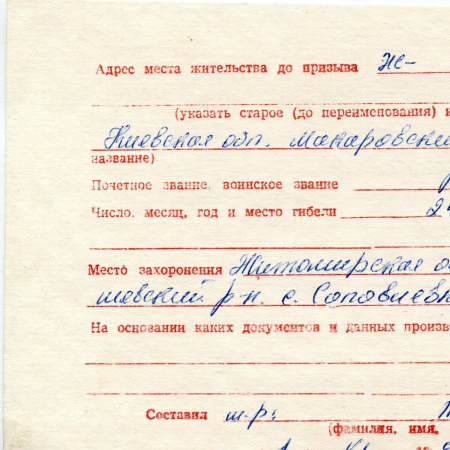 Адрес места жительства до призыва
(указать старое (до переименования) и
Киевская обл. Макаровский
название)
Почетное звание, воинское звание
Число, месяц, год и место гибели 2
Место захоронения Житомирская о
р-н. с.
На основании каких документов и данных произв
Составил
(фамилия, имя,